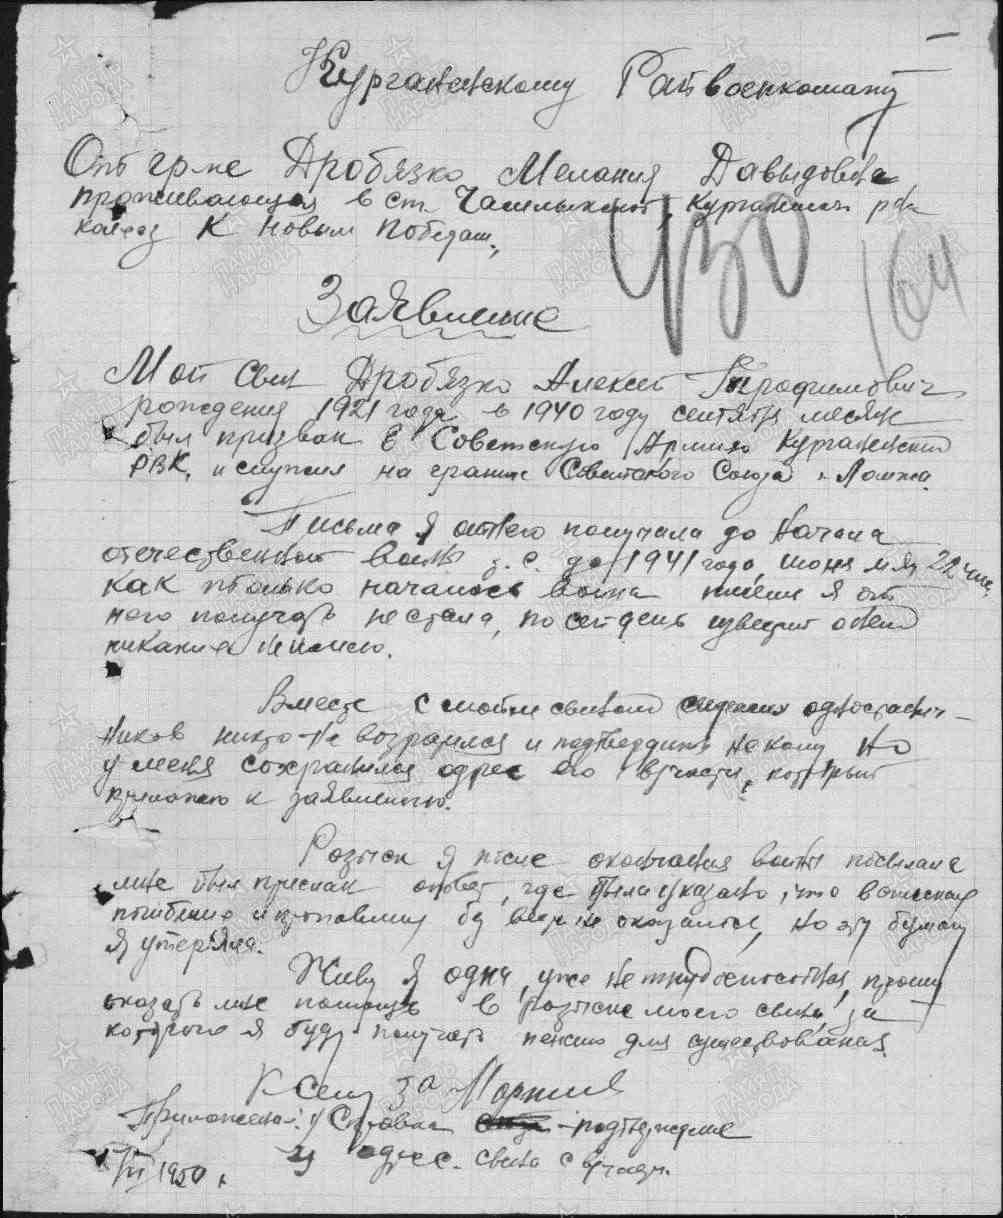 Курганинскому Райвоенкомату
От гр-не Дробязко Мелания Давыдовна
проживающая в ст. Чамлыкской, Курганинск р-на
колхоз К Новым Победам,
430
164
Заявление
Мой свин Дробязко Алексей Трофимович
рождения 1921 года в 1940 году сентября месяце
был призван в Советскую Армию Курганинский
РВК, и служил на границе Советского Союза г. Ломжа.
Письма я от него получала до начала
отечественной войны т. е. до 1941 года, июня м-ца 22 чис.
как только началось война писем я от
него получать не стала, по сей день известий о нем
никаких не имею.
Вместе с моим свином одностанич-
ников никто не возвратился и подтвердить некому но
у меня сохранился адрес его в/части, который
приложаю к заявлению.
Розыск я после окончания войны посылала
мне был прислан ответ, где было указано, что в списках
погибших и пропавших без вести не оказался, но эту бумагу
я утеряла.
Живу я одна, уже не трудоспособная, прошу
оказать мне помощь в розыске моего свина, за
которого я буду получать пенсию для существования
К сему за
Приложение: 1) Справка подтверждение
2) адрес свина с в/части.
1950 г.
ПАМЯТЬ НАРОДА